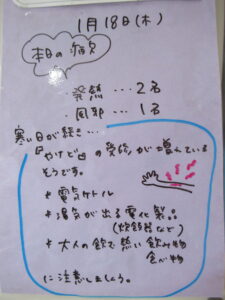 1月18日(木)
本日の病欠
発熱…2名
風邪…1名
寒い日が続き…
『やけど』の受傷が増えている
そうです。
*電気ケトル
*湯気が出る電化製品
(炊飯器など)
*大人の飲む熱い飲み物
食べ物
に注意しましょう。